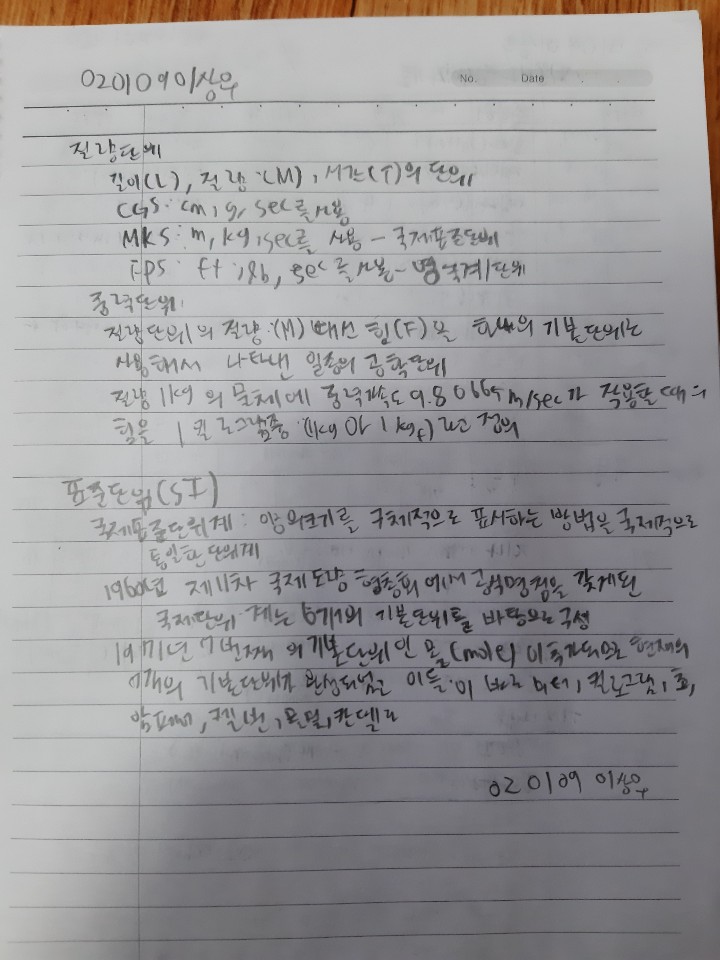 020109 이상우
No. Date
질량단위
길이(L), 질량(M), 시간(T)의 단위
CGS: cm, g, sec를 사용
MKS: m, kg, sec를 사용 - 국제표준단위
FPS: ft, lb, sec를 사용 - 영국계단위
중력단위
질량단위의 질량(M) 대신 힘(F)을 하나의 기본단위로
사용해서 나타낸 일종의 공학단위
질량 1kg의 물체에 중력가속도 9.80665m/sec가 작용할 때의
힘을 1킬로그람중 (1kg 아 1kgf)라고 정의
표준단위(SI)
국제표준단위계: 양의크기를 구체적으로 표시하는 방법을 국제적으로
통일한 단위계
1960년 제11차 국제도량형총회에서 공식명칭을 갖게된
국제단위계는 6개의 기본단위를 바탕으로 구성
1971년 7번째의 기본단위인 몰(mole)이 추가되므로 현재의
7개의 기본단위가 완성되었고 이들이 바로 미터, 킬로그램, 초,
암페어, 켈빈, 몰, 칸델라
020109 이상우